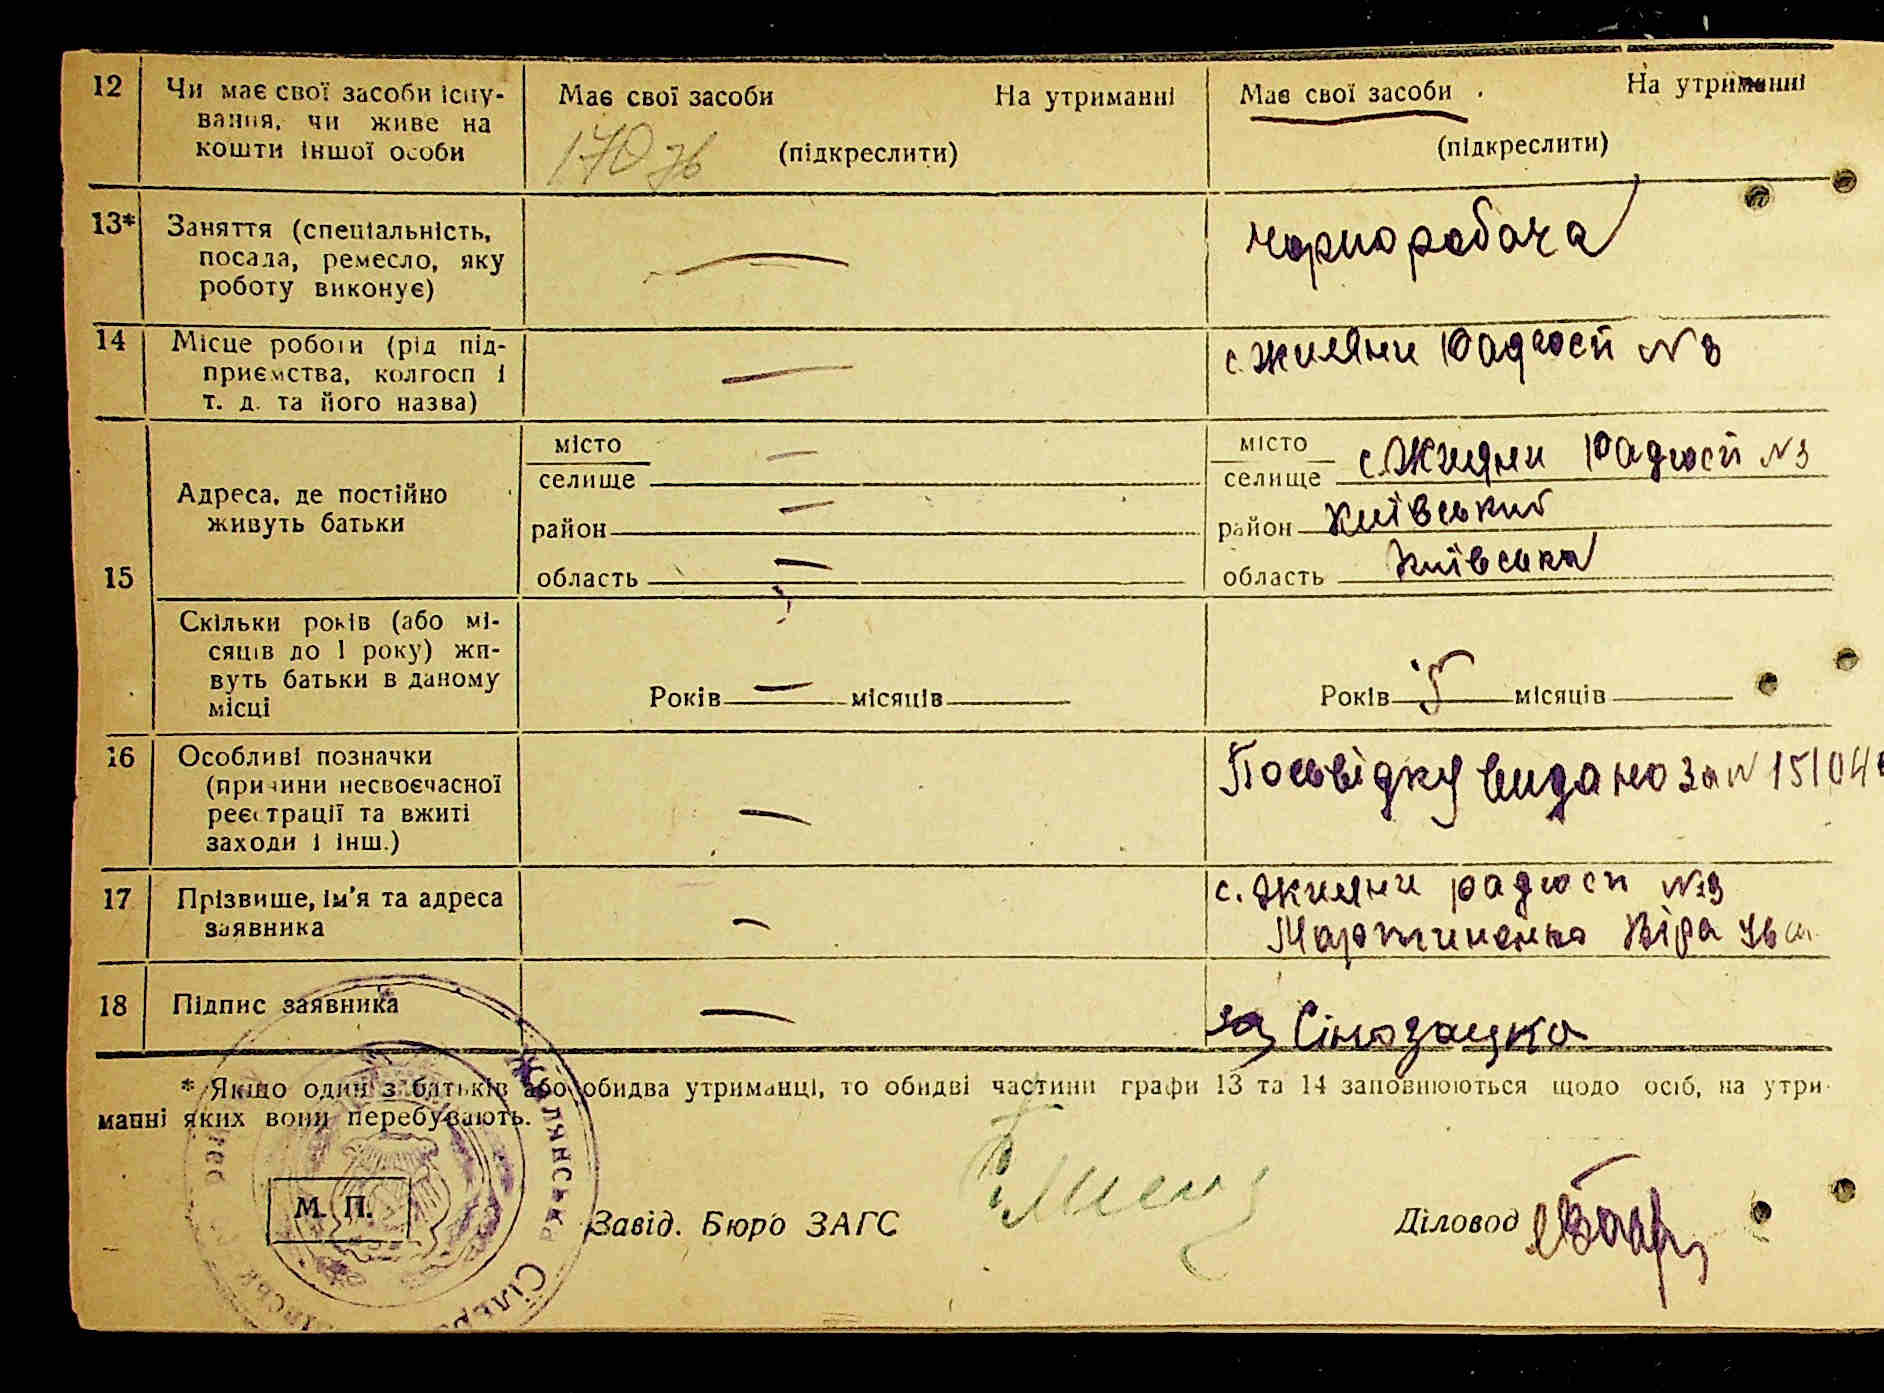 12 Чи має свої засоби існу-
вання, чи живе на
кошти іншої особи
Має свої засоби На утриманні
170
(підкреслити)
Має свої засоби На утриманні
(підкреслити)
13* Заняття (спеціальність,
посада, ремесло, яку
роботу виконує)
—
Чорноробоча
14 Місце роботи (рід під-
приємства, колгосп і
т. д. та його назва)
—
с. Жиляни Радгосп №3
15 Адреса, де постійно
живуть батьки
місто
селище —
район —
область —
місто
селище с. Жиляни Радгосп №3
район Київський
область Київська
Скільки років (або мі-
сяців до 1 року) жи-
вуть батьки в даному
місці
Років — місяців
Років 5 місяців
16 Особливі позначки
(причини несвоєчасної
реєстрації та вжиті
заходи і інш.)
—
Посвідку видано за № 15104
17 Прізвище, ім'я та адреса
заявника
—
с. Жиляни радгосп №3
Мартиненко Віра Ів
18 Підпис заявника
—
за Сінозацко
* Якщо один з батьків або обидва утриманці, то обидві частини графи 13 та 14 заповнюються щодо осіб, на утри-
манні яких вони перебувають.
М. П.
Завід. Бюро ЗАГС
Діловод
Жилянська Сільр